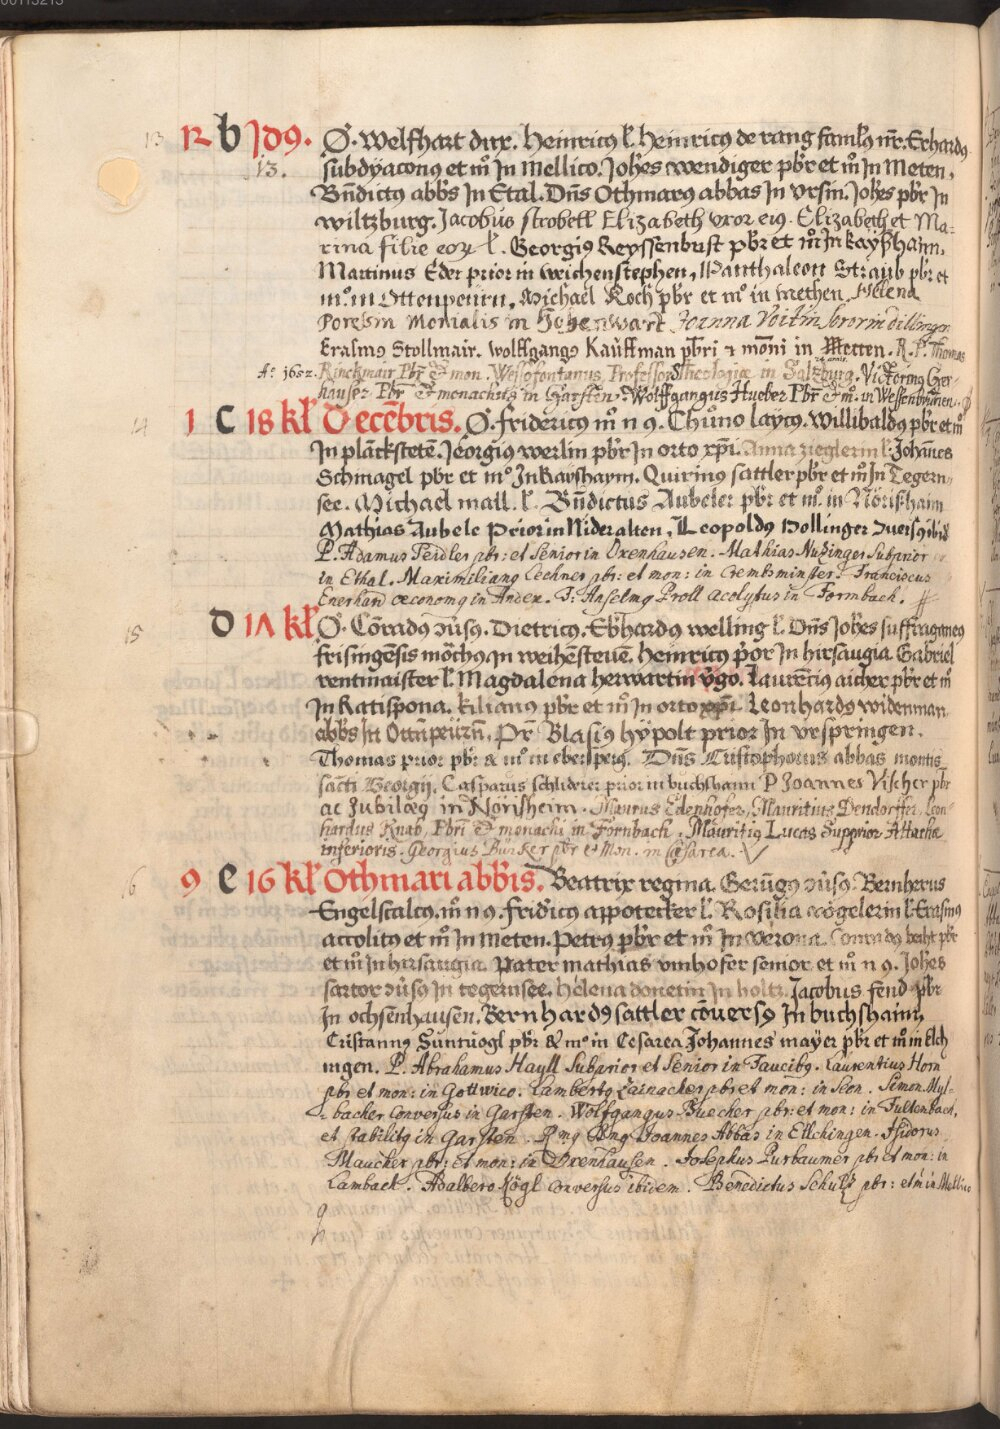 13 12 b Id9. O. Welfhart dux. Heinricus l. Heinricus de rang famls nr. Erhardus
13. subdyaconus et m In Mellico. Johes wendiger pbr et m In Meten.
Bndictus abbs In Etal. Dns Othmarus abbas In vrsin. Johes pbr In
wiltzburg. Jacobus strobell Elizabeth vxor eius. Elizabeth et Ma-
rina filie eorum l. Georgius Reyssenbust pbr et m In kayßhaim.
Martinus Eder prior in weichenstephen, Panthaleon Straub pbr et
mo in Ottenpeürn. Michael Koch pbr et mo in methen. Helena
Monialis in Hohenwart Joanna Voitin soror in dillingen
Erasmus Stollmair. Wolffgangus Kauffman pbri et moni in Metten. R. P. Thomas
Ao 1652. Rinckmair Pbr et mon. Wessofontanus, Professor Theologiae in Saltzburg. Victorinus Ger-
hauser Pbr et monachus in Garsten. Wolffgangus Hueber Pbr et m. in Wessenbrunen.
14 1 C 18 kl Decebris. O. fridericus m n 9. Chuno laycus. Willibaldus pbr et m
In planckstete. Jeorgius werlin pbr In orto xpi. Anna zieglerin l. Johannes
Schmagel pbr et mo In kayshaym. Quirinus sattler pbr et m In Tegern-
see. Michael mall. l. Bndictus Aubeler pbr et mo in Nörishaim
Mathias Aubele Prior in Nideralten, Leopoldus Hollinger ibid
P. Adamus Teidler pbr: et Senior in Oxenhausen. Mathias Nußinger Subprior
in Ethal. Maximilianus Lechner pbr: et mon: in Crembsminster. Franciscus
Enerhard oeconomus in Andex. F. Anselmus Proll acolytus in Formbach.
15 D 17 kl O. Conradus Dietricus. Eberhardus welling l. Dns Johes suffraganeus
frisingensis mochus In weihesteue. Heinricus por In hirsaugia. Gabriel
rentmaister l. Magdalena herwartin vgo. Laurencius aicher pbr et m
In Ratispona. kilianus pbr et m In orto xpi. Leonhardus widenman
abbs In Ottnpeürn. Pr Blasius hypolt prior In vrspringen.
Thomas prior pbr & mo in ebersperg. Dns Cristophorus abbas montis
sacti Georgij. Casparus schliderer prior in buchshaim P Joannes Vischer pbr
ac Jubilaeus in Norisheim. Maurus Edenhofer, Mauritius Dendorffer, Leon-
hardus Knab, Pbri et monachi in Formbach. Mauritius Lucas Supprior Altacha
inferioris. Georgius Büncker pbr et Mon. in Caesarea.
16 9 E 16 kl Othmari abbis. Beatrix regina. Gerugus Bernherus
Engelscalcus. m n 9. fridricus appotecker l. Rosilia vogelerin l. Erasmus
accolitus et m In Meten. Petrus pbr et m In verona. Conradus becht pbr
et m In hirsaugia. Pater mathias vinhofer senior et m n 9. Johes
sartor In tegernsee. Helena donerin In holtz. Jacobus fend pbr
In ochsenhausen. Bernhardus sattler couersus In buchshaim,
Cristannus Suntuogl pbr & mo in Cesarea Johannes mayer pbr et m in Elch
ingen. P. Abrahamus Hayll Subprior et Senior in Faucibus. Laurentius Horn
pbr et mon: in Gottwico. Lambertus Lainacker pbr et mon: in Seon. Simon Myl-
bacher Conversus in Garsten. Wolfgangus Buecher pbr: et mon: in Fultenbach,
et stabilitus in Garsten. Rmus Dnus Joannes Abbas in Elchingen. Isidorus
Maucher pbr: et mon: in Oxenhausen. Josephus Purbaumer pbr et mon: in
Lambach. Adalbero Kögl conversus ibidem. Benedictus Schulz pbr: et m in Mellico